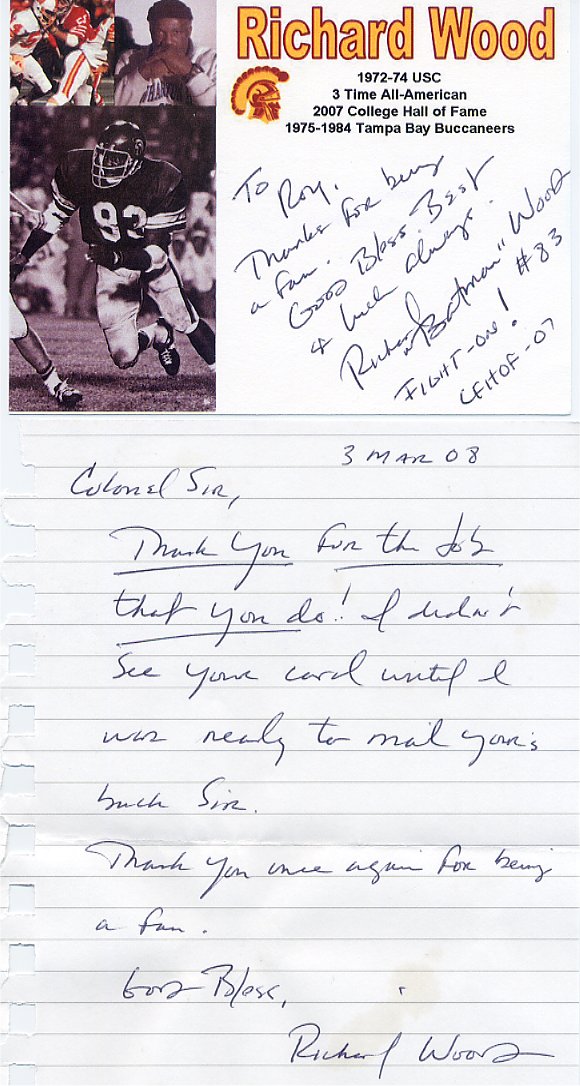 Richard Wood
1972-74 USC
3 Time All-American
2007 College Hall of Fame
1975-1984 Tampa Bay Buccaneers
83
To Roy,
Thanks for being
a fan.
God Bless. Best
& luck always.
Richard "Batman" Wood
#83
FIGHT-ON!
CFHOF-07
3 MAR 08
Colonel Sir,
Thank You for the Job
that you do! I didn't
see your card until I
was ready to mail your's
back Sir.
Thank you once again for being
a fan.
God Bless,
Richard Wood